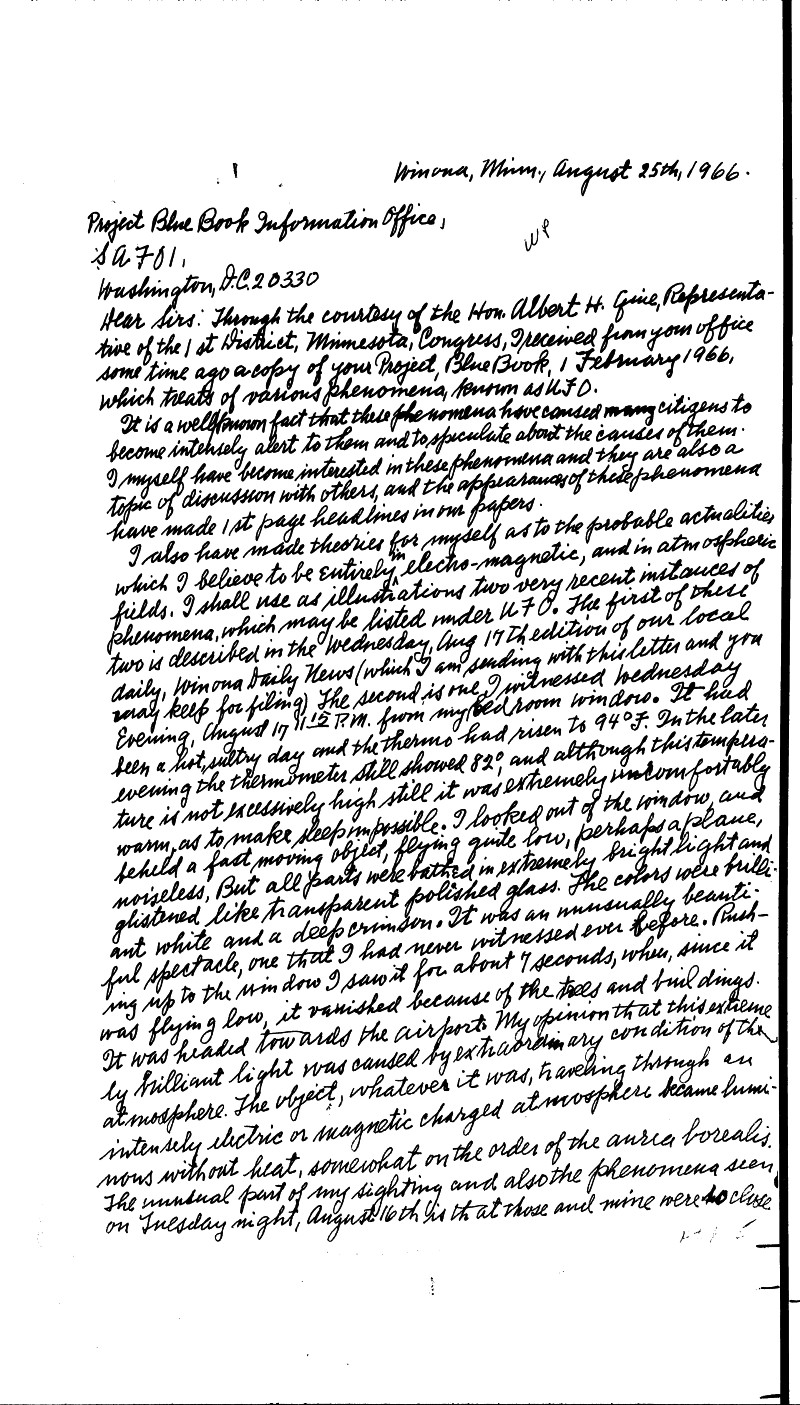 Winona, Minn., August 25th, 1966.
Project Blue Book Information Office,
WP
SA701,
Washington, D.C. 20330
Dear Sirs: Through the courtesy of the Hon. Albert H. Quie, Representa-
tive of the 1st District, Minnesota, Congress, I received from your office
some time ago a copy of your Project, Blue Book, 1 February 1966,
which treats of various phenomena, known as UFO.
It is a well known fact that these phenomena have caused many citizens to
become intensely alert to them and to speculate about the causes of them.
I myself have become interested in these phenomena and they are also a
topic of discussion with others, and the appearances of these phenomena
have made 1st page headlines in our papers.
I also have made theories for myself as to the probable actualities
which I believe to be entirely in electro-magnetic, and in atmospheric
fields. I shall use as illustrations two very recent instances of
phenomena, which may be listed under UFO. The first of these
two is described in the Wednesday, Aug 17th edition of our local
daily, Winona Daily News (which I am sending with this letter and you
may keep for filing) The second is one I witnessed Wednesday
Evening, August 17 11:15 P.M. from my bedroom window. It had
been a hot, sultry day and the thermo had risen to 94°F. In the later
evening the thermometer still showed 82°, and although this tempera-
ture is not excessively high still it was extremely uncomfortably
warm, as to make sleep impossible. I looked out of the window, and
beheld a fast moving object, flying quite low, perhaps a plane,
noiseless, But all parts were bathed in extremely bright light and
glistened like transparent polished glass. The colors were brilli-
ant white and a deep crimson. It was an unusually beauti-
ful spectacle, one that I had never witnessed ever before. Rush-
ing up to the window I saw it for about 7 seconds, when, since it
was flying low, it vanished because of the trees and buildings.
It was headed towards the airport. My opinion that this extreme
ly brilliant light was caused by extraordinary condition of the
atmosphere. The object, whatever it was, traveling through an
intensely electric or magnetic charged atmosphere became lumi-
nous without heat, somewhat on the order of the aurea borealis.
The unusual part of my sighting and also the phenomena seen
on Tuesday night, August 16th is that those and mine were so close